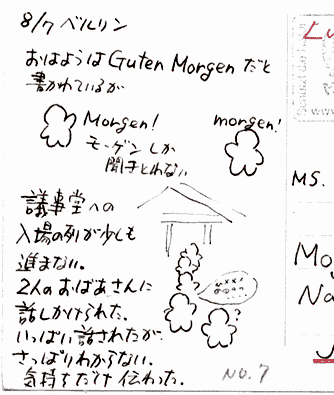 8/7 ベルリン
おはようはGuten Morgen だと
書かれているが
Morgen!
モーゲン しか
聞きとれない
morgen!
議事堂への
入場の列が少しも
進まない。
2人のおばあさんに
話しかけられた。
いっぱい話されたが
さっぱりわからない。
気持ちだけ伝わった。
××××
?
NO.7
MS.
Mo
Na
www